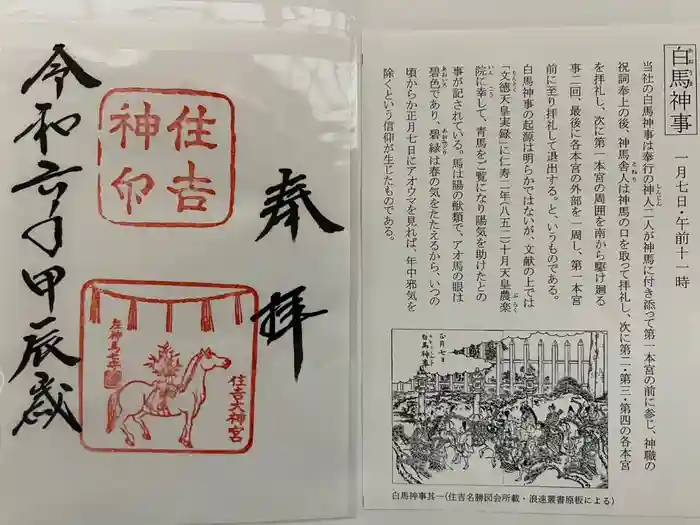 奉拝
住吉
神印
住吉大神宮
令和六年甲辰歳
白馬神事
一月七日・午前十一時
当社の白馬神事は奉行の神人二人が神馬に付き添って第一本宮の前に参じ、神職の
祝詞奉上の後、神馬舎人は神馬の口を取って拝礼し、次に第二・第三・第四の各本宮
を拝礼し、次に第一本宮の周囲を南から駆け廻る
事二回、最後に各本宮の外部を一周し、第一本宮
前に至り拝礼して退出する。と、いうものである。
白馬神事の起源は明らかではないが、文献の上では
「文徳天皇実録」に仁寿二年(八五二)十月天皇農楽
院に幸して、青馬をご覧になり陽気を助けたとの
事が記されている。馬は陽の獣類で、アオ馬の眼は
碧色であり、碧緑は春の気をたたえるから、いつの
頃からか正月七日にアオウマを見れば、年中邪気を
除くという信仰が生じたものである。
正月七日
白馬神事
白馬神事其一(住吉名勝図会所載・浪速叢書原板による)